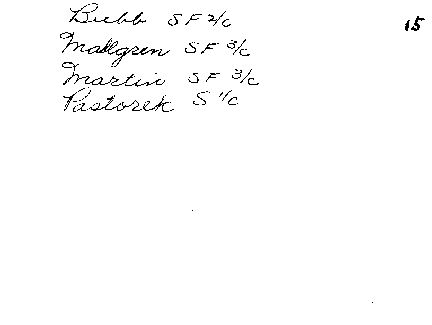 Bubb SF 2/c
15
Mallgren SF 3/c
Martin SF 3/c
Pastorek S 1/c